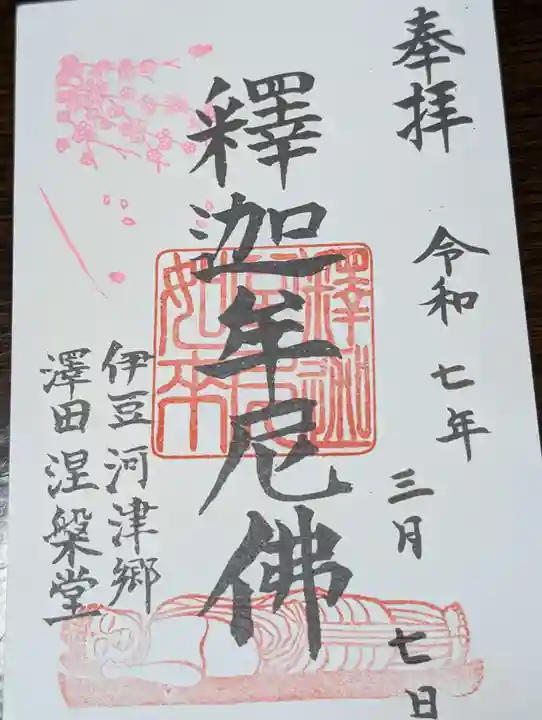 奉拝
令和七年
三月七日
釋迦牟尼佛
釋迦牟尼如来
伊豆河津郷
澤田涅槃堂